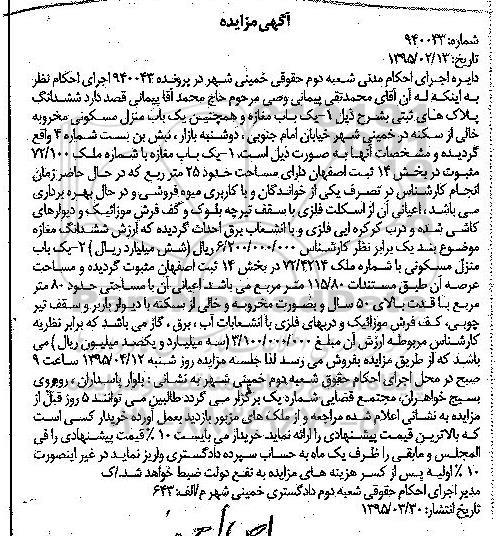 آگهی مزایده
شماره: ۹۴۰۰۴۳
تاریخ: ۱۳۹۵/۰۲/۱۳
دایره اجرای احکام مدنی شعبه دوم حقوقی خمینی شهر در پرونده ۹۴۰۰۴۳ اجرای احکام نظر
به اینکه له آن آقای محمدتقی پیمانی وصی مرحوم حاج محمد آقا پیمانی قصد دارد ششدانگ
پلاک های ثبتی بشرح ذیل ۱-یک باب مغازه و همچنین یک باب منزل مسکونی مخروبه
خالی از سکنه در خمینی شهر خیابان امام جنوبی، دوشنبه بازار، نبش بن بست شماره ۴ واقع
گردیده و مشخصات آنها به صورت ذیل است. ۱-یک باب مغازه با شماره ملک ۷۲/۱۰۰
مثبوت در بخش ۱۴ ثبت اصفهان دارای مساحت حدود ۲۵ متر ربع که در حال حاضر زمان
انجام کارشناس در تصرف یکی از خواندگان و با کاربری میوه فروشی و در حال بهره برداری
می باشد، اعیانی آن از اسکلت فلزی با سقف تیرچه بلوک و گف فرش موزائیک و دیوارهای
کاشی شده و درب کرکره ایی فلزی و با انشعاب برق احداث گردیده که ارزش ششدانگ مغازه
موضوع بند یک برابر نظر کارشناس ۶/۲۰۰/۰۰۰/۰۰۰ ریال (شش میلیارد ریال) ۲-یک باب
منزل مسکونی با شماره ملک ۷۲/۴۲۱۴ در بخش ۱۴ ثبت اصفهان مثبوت گردیده و مساحت
عرصه آن طبق مستندات ۱۱۵/۸۰ متر مربع می باشد اعیانی آن با مساحتی حدود ۸۰ متر
مربع با قدمت بالای ۵۰ سال و بصورت مخروبه و خالی از سکنه با دیوار باربر و سقف تیر
چوبی، کف فرش موزائیک و دربهای فلزی با انشعابات آب، برق، گاز می باشد که برابر نظریه
کارشناس مربوطه ارزش آن مبلغ ۳/۱۰۰/۰۰۰/۰۰۰ (سه میلیارد و یکصد میلیون ریال) می
باشد که از طریق مزایده بفروش می رسد لذا جلسه مزایده روز شنبه ۱۳۹۵/۰۴/۱۲ ساعت ۹
صبح در محل اجرای احکام حقوق شعبه دوم خمینی شهر به نشانی: بلوار پاسداران، روبروی
بسیج خواهران، مجتمع قضایی شماره یک برگزار می گردد طالبین می توانند ۵ روز قبل از
مزایده به نشانی اعلام شده مراجعه و از ملک های مزبور بازدید بعمل آورند خریدار کسی است
که بالاترین قیمت پیشنهادی را ارائه نماید. خریدار می بایست ۱۰٪ قیمت پیشنهادی را فی
المجلس و مابقی را ظرف یک ماه به حساب سپرده دادگستری واریز نماید در غیر اینصورت
۱۰٪ اولیه پس از کسر هزینه های مزایده به نفع دولت ضبط خواهد شد.ک
مدیر اجرای احکام حقوقی شعبه دوم دادگستری خمینی شهر م/الف: ۶۴۳
تاریخ انتشار: ۱۳۹۵/۰۳/۳۰